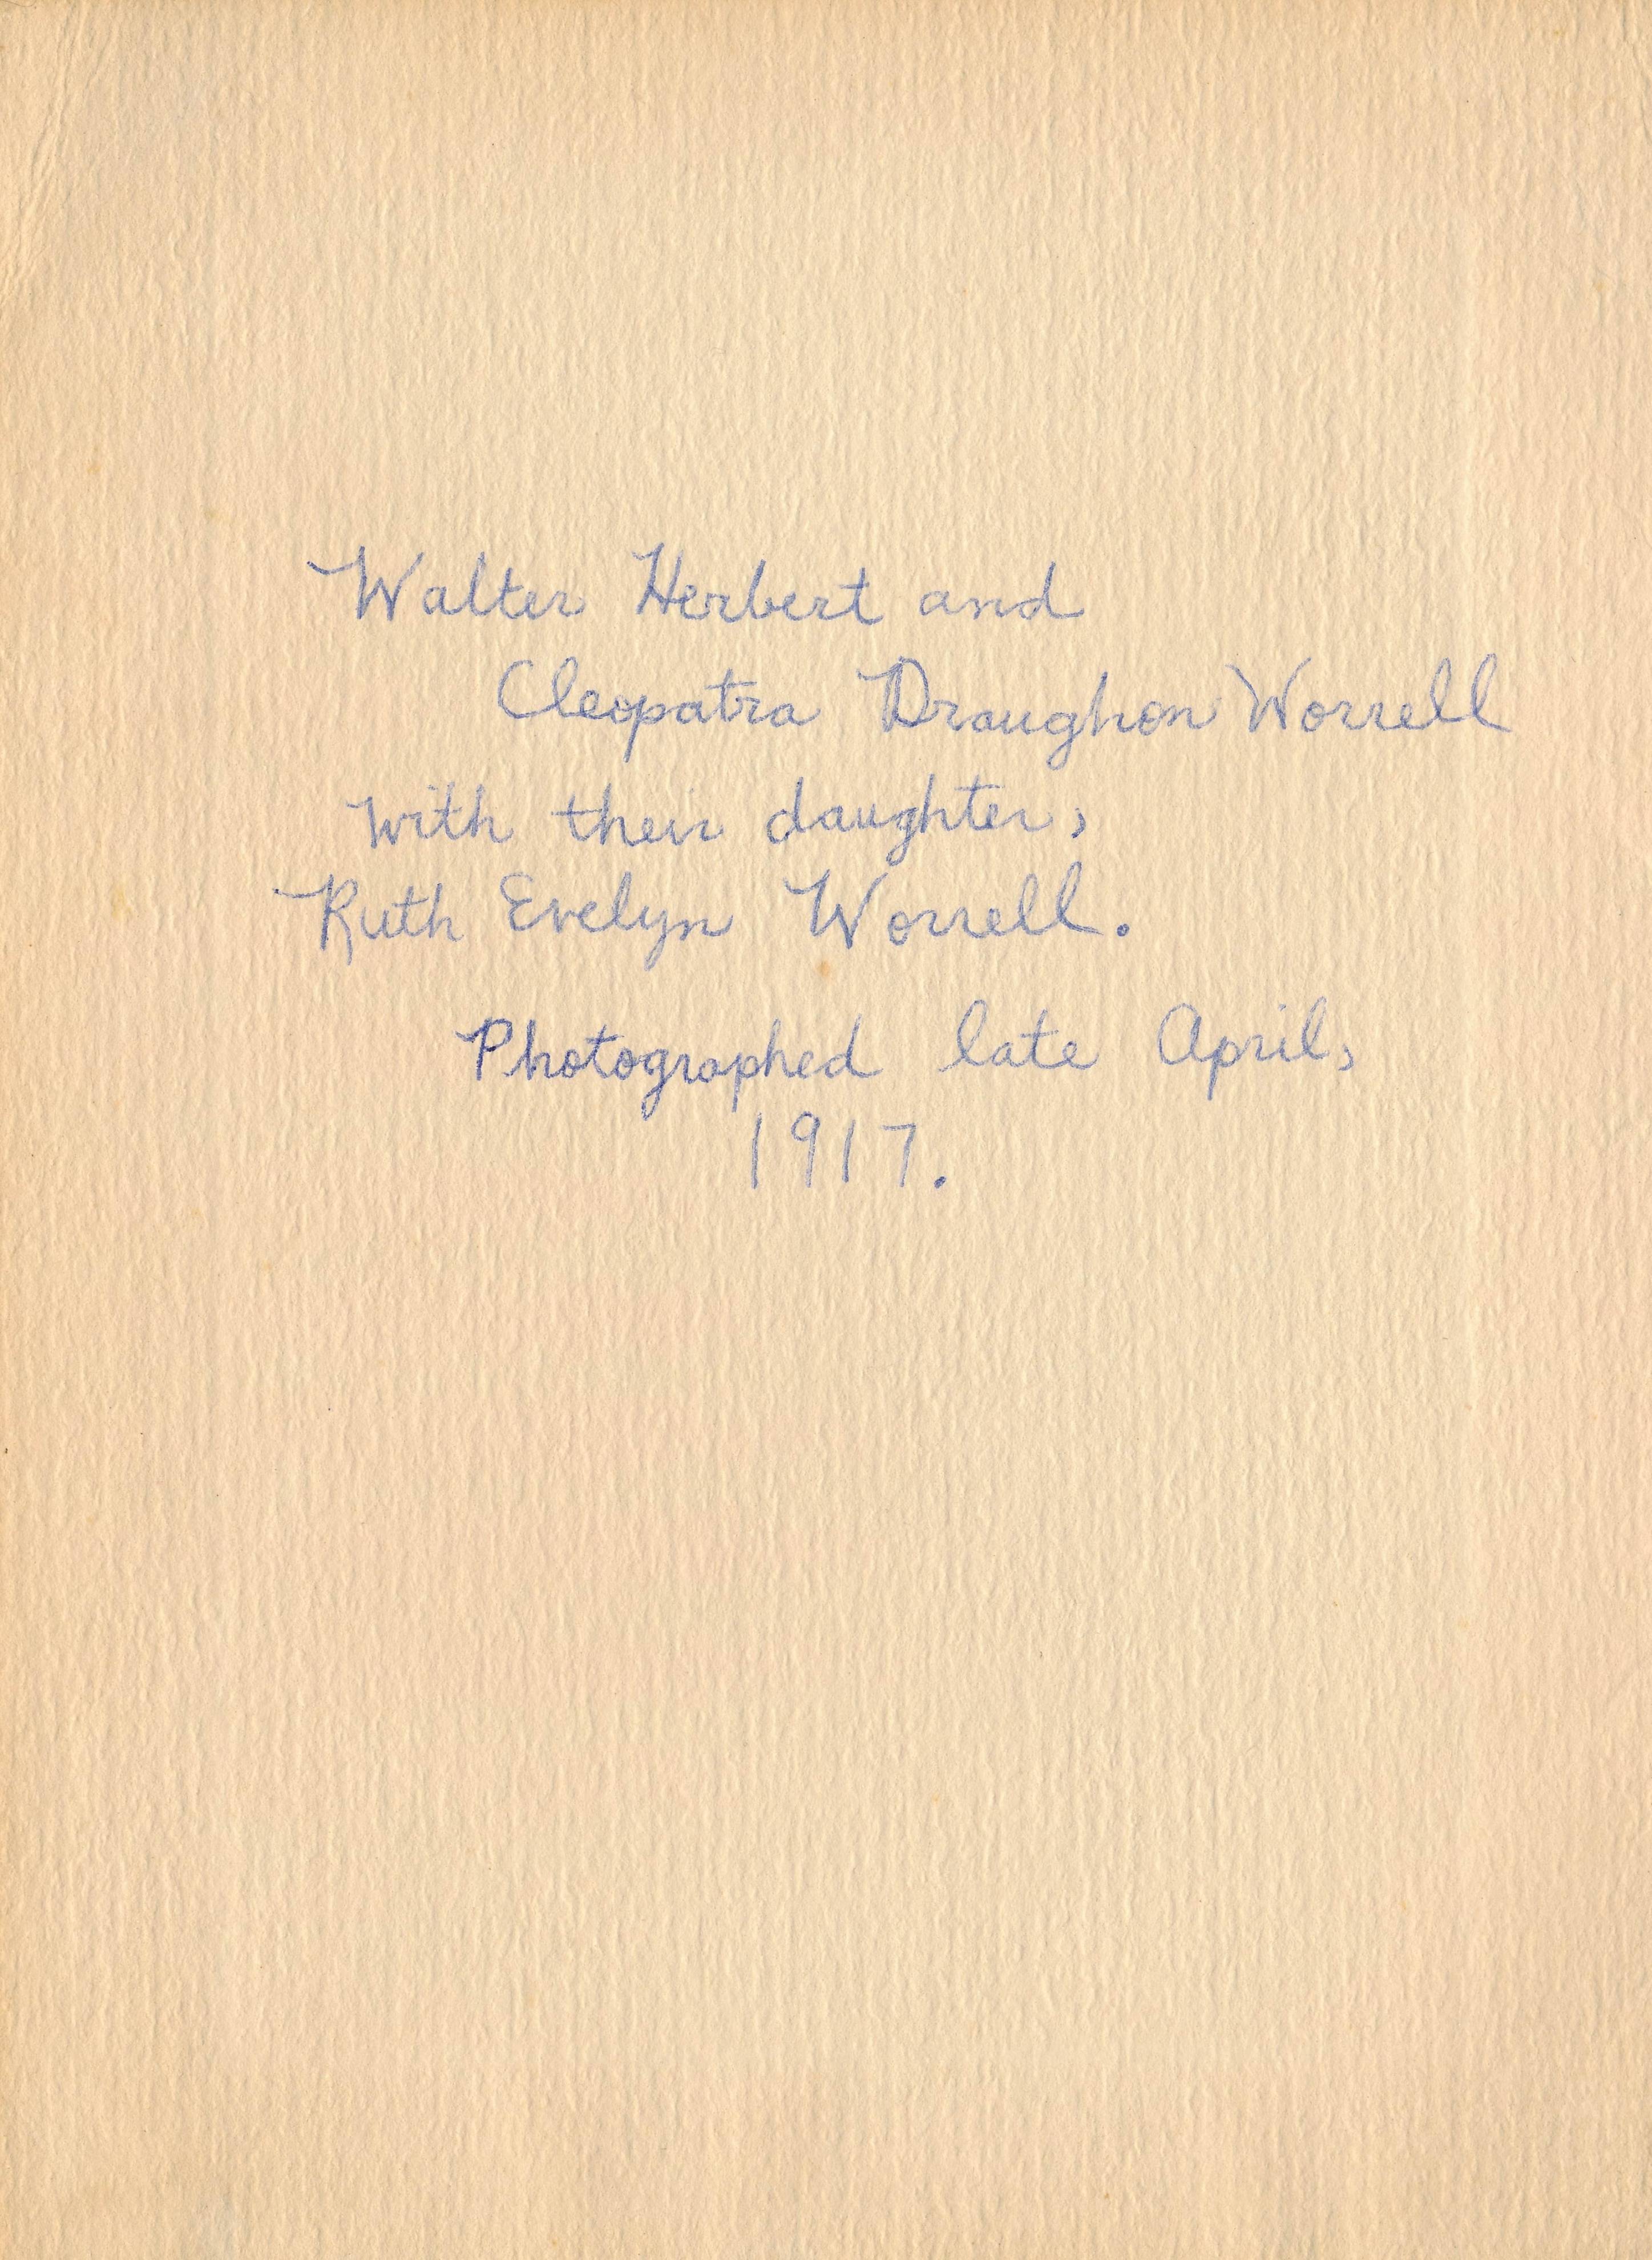 Walter Herbert and
Cleopatra Draughon Worrell
with their daughter,
Ruth Evelyn Worrell.
Photographed late April,
1917.